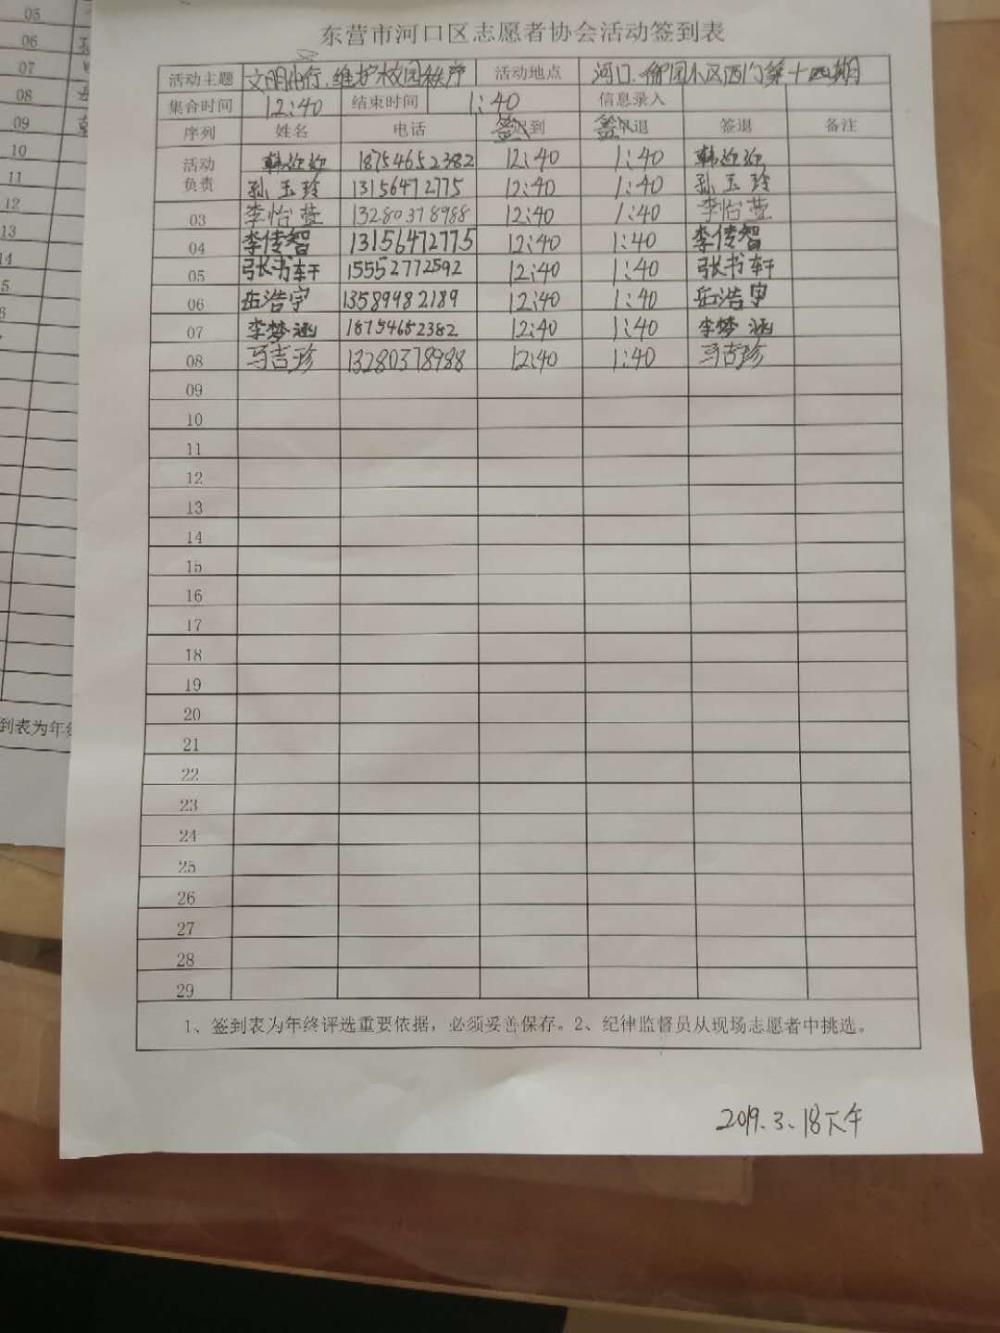 东营市河口区志愿者协会活动签到表
活动主题 文明出行、维护校园秩序 活动地点 河口、御园小区西门第十四期
集合时间 12:40 结束时间 1:40 信息录入
序列 姓名 电话 签到 签退 签退 备注
活动负责 韩迎迎 18754652382 12:40 1:40 韩迎迎
孙玉玲 13156472775 12:40 1:40 孙玉玲
03 李怡萱 13280378988 12:40 1:40 李怡萱
04 李传智 13156472775 12:40 1:40 李传智
05 张书轩 15552772592 12:40 1:40 张书轩
06 岳浩宇 13589982189 12:40 1:40 岳浩宇
07 李梦涵 18754652382 12:40 1:40 李梦涵
08 马吉珍 13280378988 12:40 1:40 马吉珍
09
10
11
12
13
14
15
16
17
18
19
20
21
22
23
24
25
26
27
28
29
1、签到表为年终评选重要依据，必须妥善保存。2、纪律监督员从现场志愿者中挑选。
2019.3.18下午
05
06
07
08
09
10
11
12
13
14
到表为年